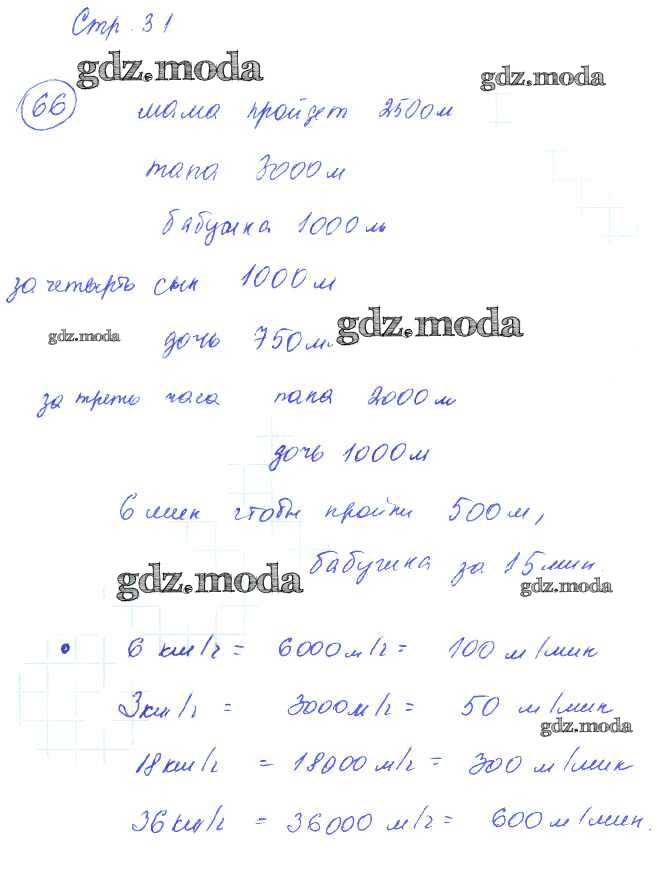 Стр. 31
gdz.moda
gdz.moda
66 мама пройдет 2500 м
папа 3000 м
бабушка 1000 м
за четверть сын 1000 м
gdz.moda дочь 750 м. gdz.moda
за треть часа папа 2000 м
дочь 1000 м
6 мин чтобы пройти 500 м,
бабушка за 15 мин.
gdz.moda
gdz.moda
• 6 км/ч = 6000 м/ч = 100 м/мин
3 км/ч = 3000 м/ч = 50 м/мин
gdz.moda
18 км/ч = 18000 м/ч = 300 м/мин
36 км/ч = 36000 м/ч = 600 м/мин.